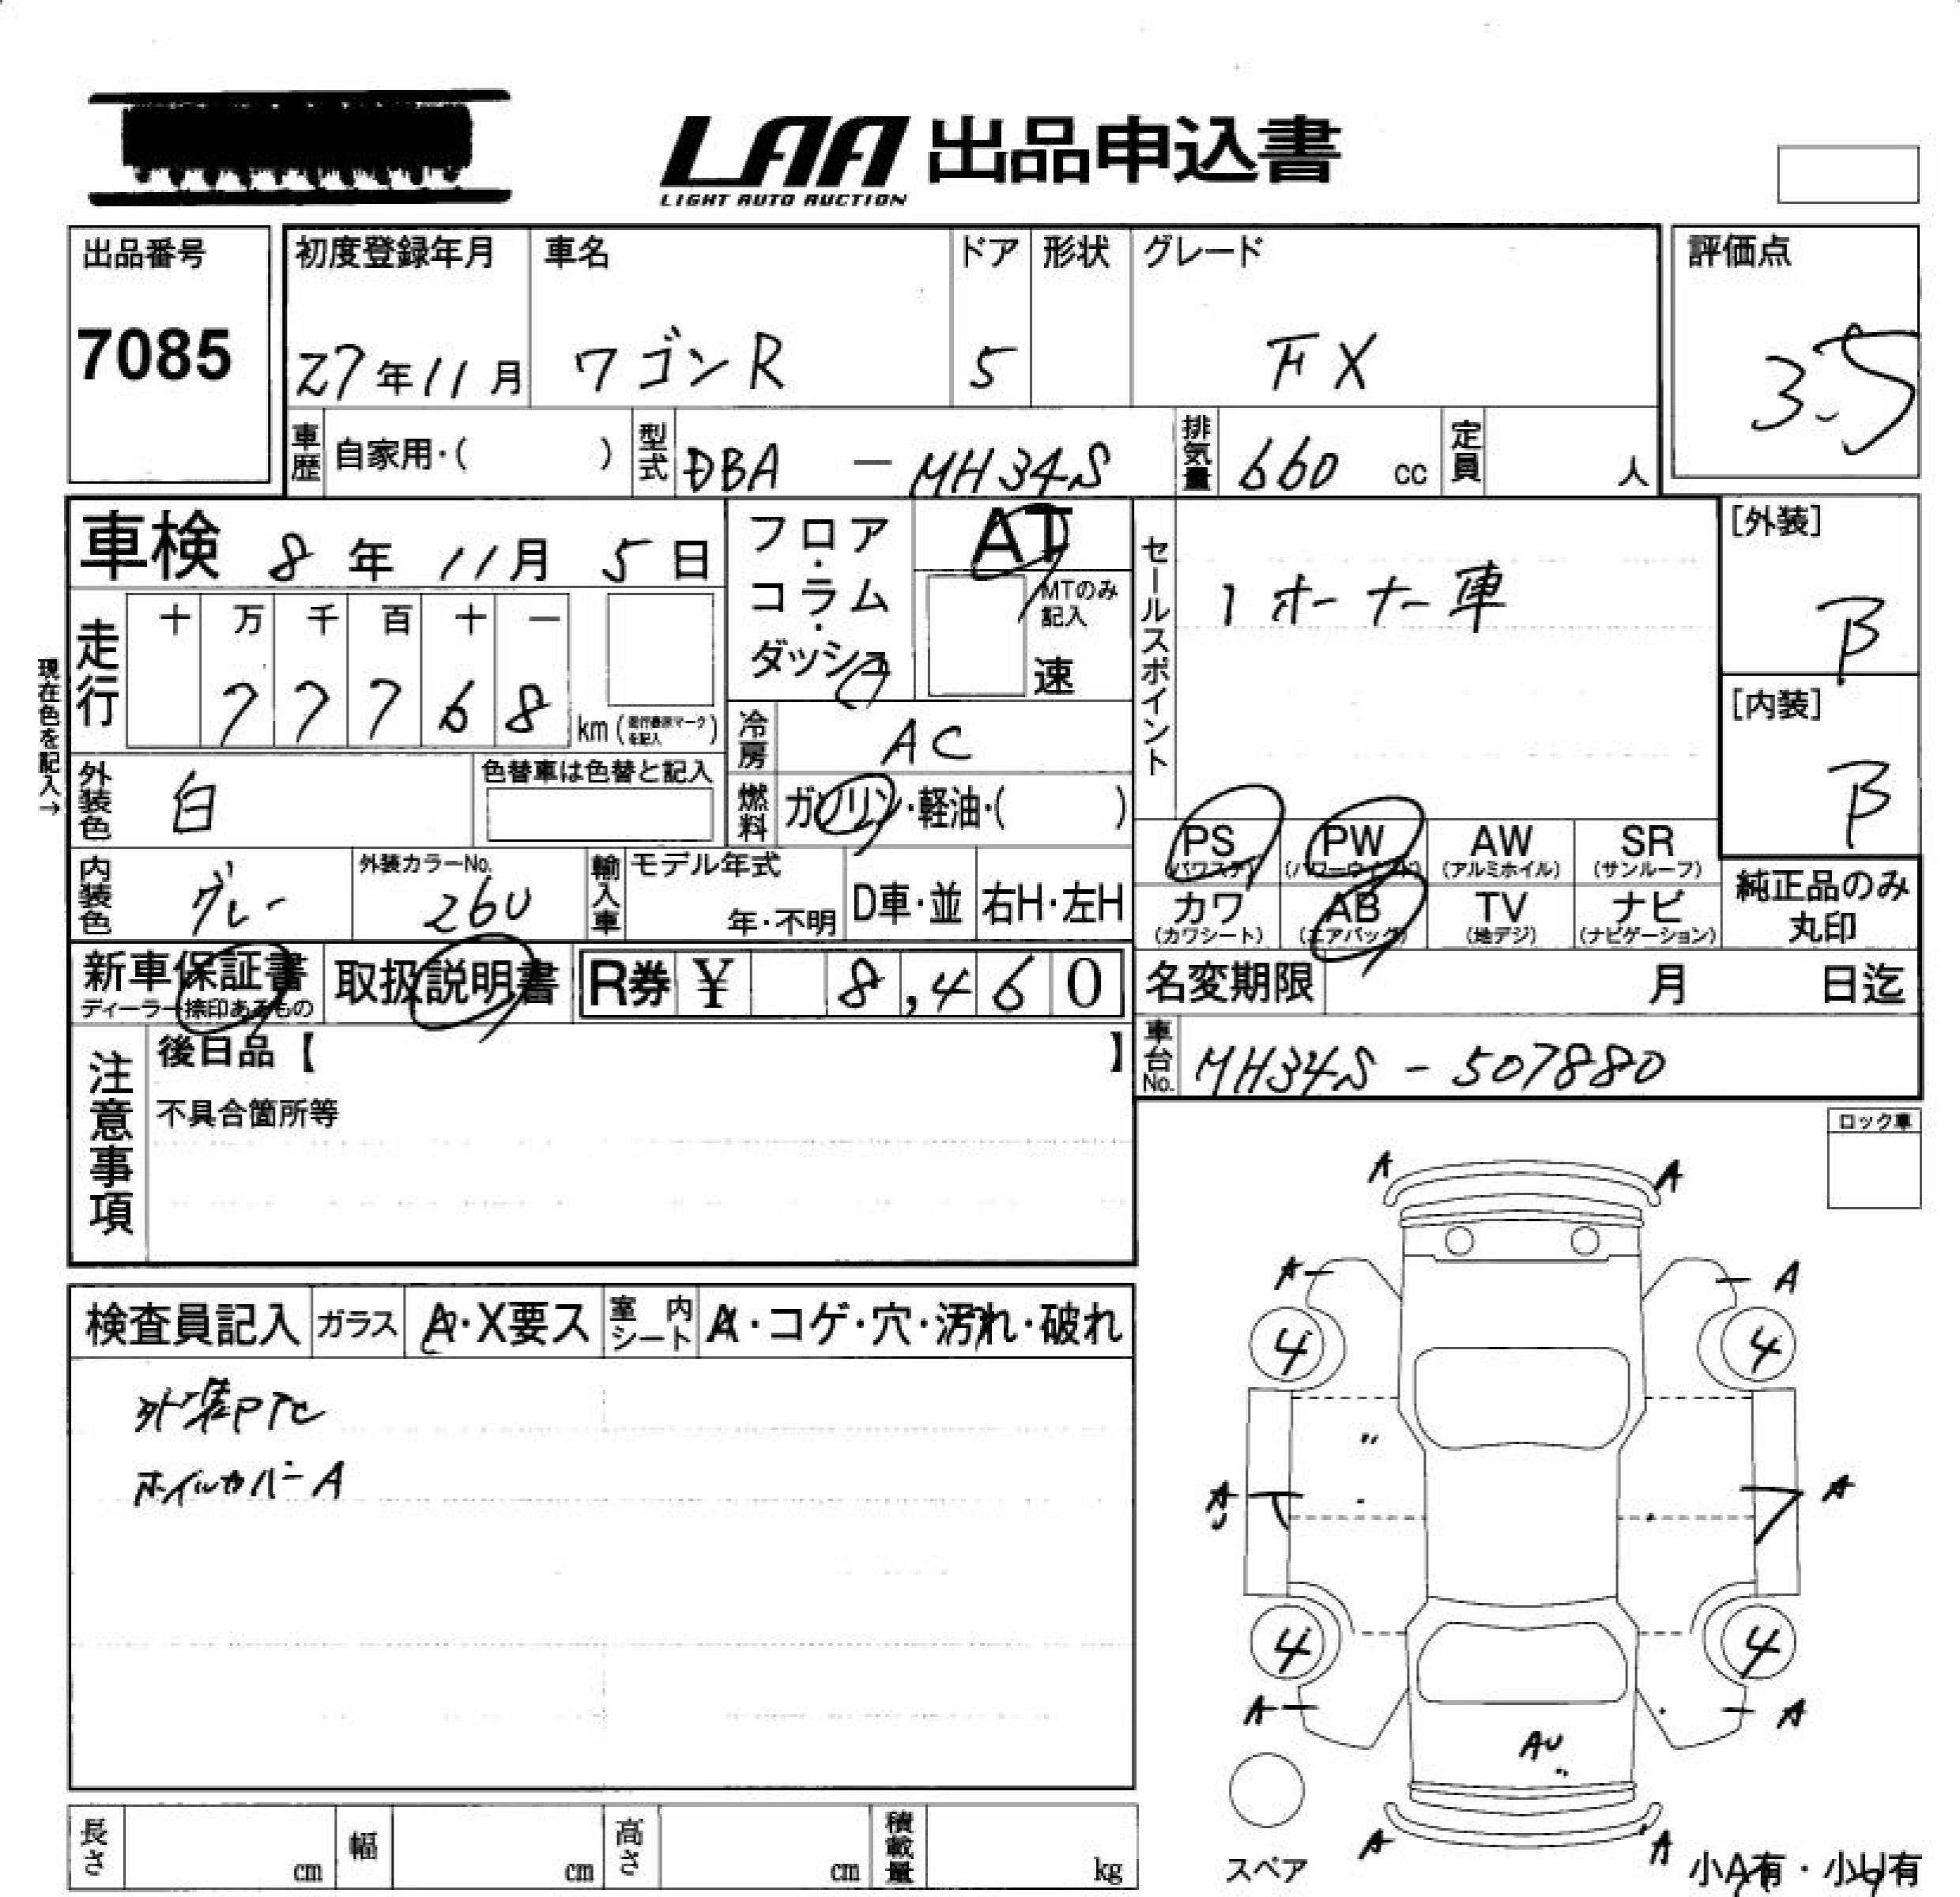 LAA 出品申込書
LIGHT AUTO AUCTION
出品番号
7085
初度登録年月
27年11月
車名
ワゴンR
ドア
5
形状
グレード
FX
評価点
3.5
車歴 自家用・( )
型式 DBA － MH34S
排気量 660 cc
定員 人
車検 8年11月5日
フロア・コラム・ダッシュ
AT
MTのみ記入
速
セールスポイント
1オーナー車
[外装]
B
[内装]
B
現在色を記入→
走行
十 万 千 百 十 一
7 7 7 6 8
km (走行表示マークを記入)
冷房 AC
外装色 白
色替車は色替と記入
燃料 ガソリン・軽油・( )
PS (パワステ)
PW (パワーウインド)
AW (アルミホイル)
SR (サンルーフ)
カワ (カワシート)
AB (エアバッグ)
TV (地デジ)
ナビ (ナビゲーション)
純正品のみ丸印
内装色 グレー
外装カラーNo. 26U
輸入車
モデル年式
年・不明
D車・並
右H・左H
新車保証書
ディーラー捺印あるもの
取扱説明書
R券 ¥ 8,460
名変期限 月 日迄
車台No. MH34S - 507880
注意事項
後日品【 】
不具合箇所等
ロック車
検査員記入
ガラス A・X要ス
室内シート A・コゲ・穴・汚れ・破れ
外装PTC
ホイルカバーA
A A
A A
4 4
〃
A A
4 4
A A
AU
A A
スペア
小A有・小U有
長さ cm
幅 cm
高さ cm
積載量 kg